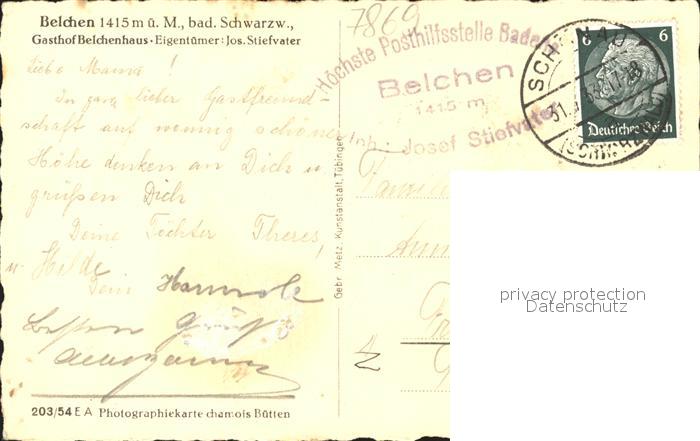 Belchen 1415 m ü. M., bad. Schwarzw.,
Gasthof Belchenhaus · Eigentümer: Jos. Stiefvater
Liebe Mama!
In ganz lieber Gastfreund-
schaft auf wonnig schöner
Höhe denken an Dich u.
grüßen Dich
Deine Töchter Theres,
u. Hilde
Dein
Besten Gruß
203/54 E A Photographiekarte chamois Bütten
Gebr. Metz, Kunstanstalt, Tübingen
7869
Höchste Posthilfsstelle Badens
Belchen
1415 m
Inh.: Josef Stiefvater
SCHÖNAU
(SCHW
6 6
Deutsches Reich
privacy protection
Datenschutz